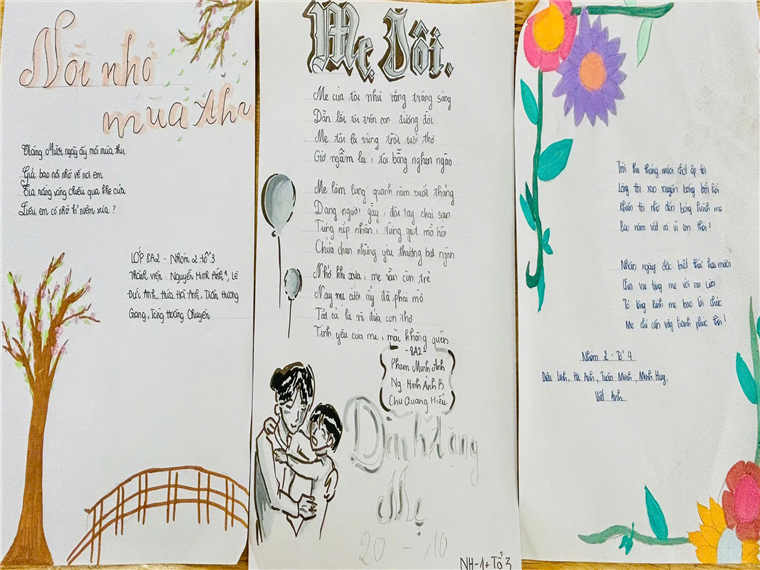 Nỗi nhớ
mùa thu
Tháng Mười ngày ấy mới mùa thu
Gửi bao nỗi nhớ về nơi em
Tia nắng vàng chiều qua khe cửa
Liệu em có nhớ kỉ niệm xưa ?
LỚP 8A2 - Nhóm 2 tổ 3
Thành viên : Nguyễn Minh Anh , Lê
Đức Anh , Hứa Hải Anh , Trần Hương
Giang , Tống Hoàng Chuyên
Mẹ Tôi.
Mẹ của tôi như vầng trăng sáng
Dẫn lối tôi trên con đường đời
Mẹ tôi là vùng trời tuổi thơ
Giờ ngẫm lại , tôi bỗng nghẹn ngào
Mẹ làm lụng quanh năm suốt tháng
Dáng người gầy , đôi tay chai sạn
Từng nếp nhăn , từng giọt mồ hôi
Chứa chan những yêu thương bất ngàn
Nhớ khi xưa , mẹ vẫn còn trẻ
Nay nụ cười ấy đã phai mờ
Tất cả là vì đứa con thơ
Tình yêu của mẹ , mãi không quên
- 8A2 -
Phạm Minh Anh
Ng Minh Ánh B
Chu Quang Hiếu
Dành tặng
Mẹ
20 - 10
NH-1+Tổ 3
Trời thu tháng mười đẹp
Lòng tôi xao xuyến bỗng bồi hồi
Khiến tôi nhớ đến bóng hình mẹ
Lúc nào vất vả vì em thôi !
Nhân ngày đặc biệt thứ hai mươi
Cha vui từng mẹ với nụ cười
Tỏ lòng kính mẹ bao lời chúc
Mẹ chỉ cần vậy hạnh phúc thôi !
Nhóm 2 - Tổ 4
Diệu Linh , Hà Anh , Tuấn Minh , Minh Huy,
Việt Anh